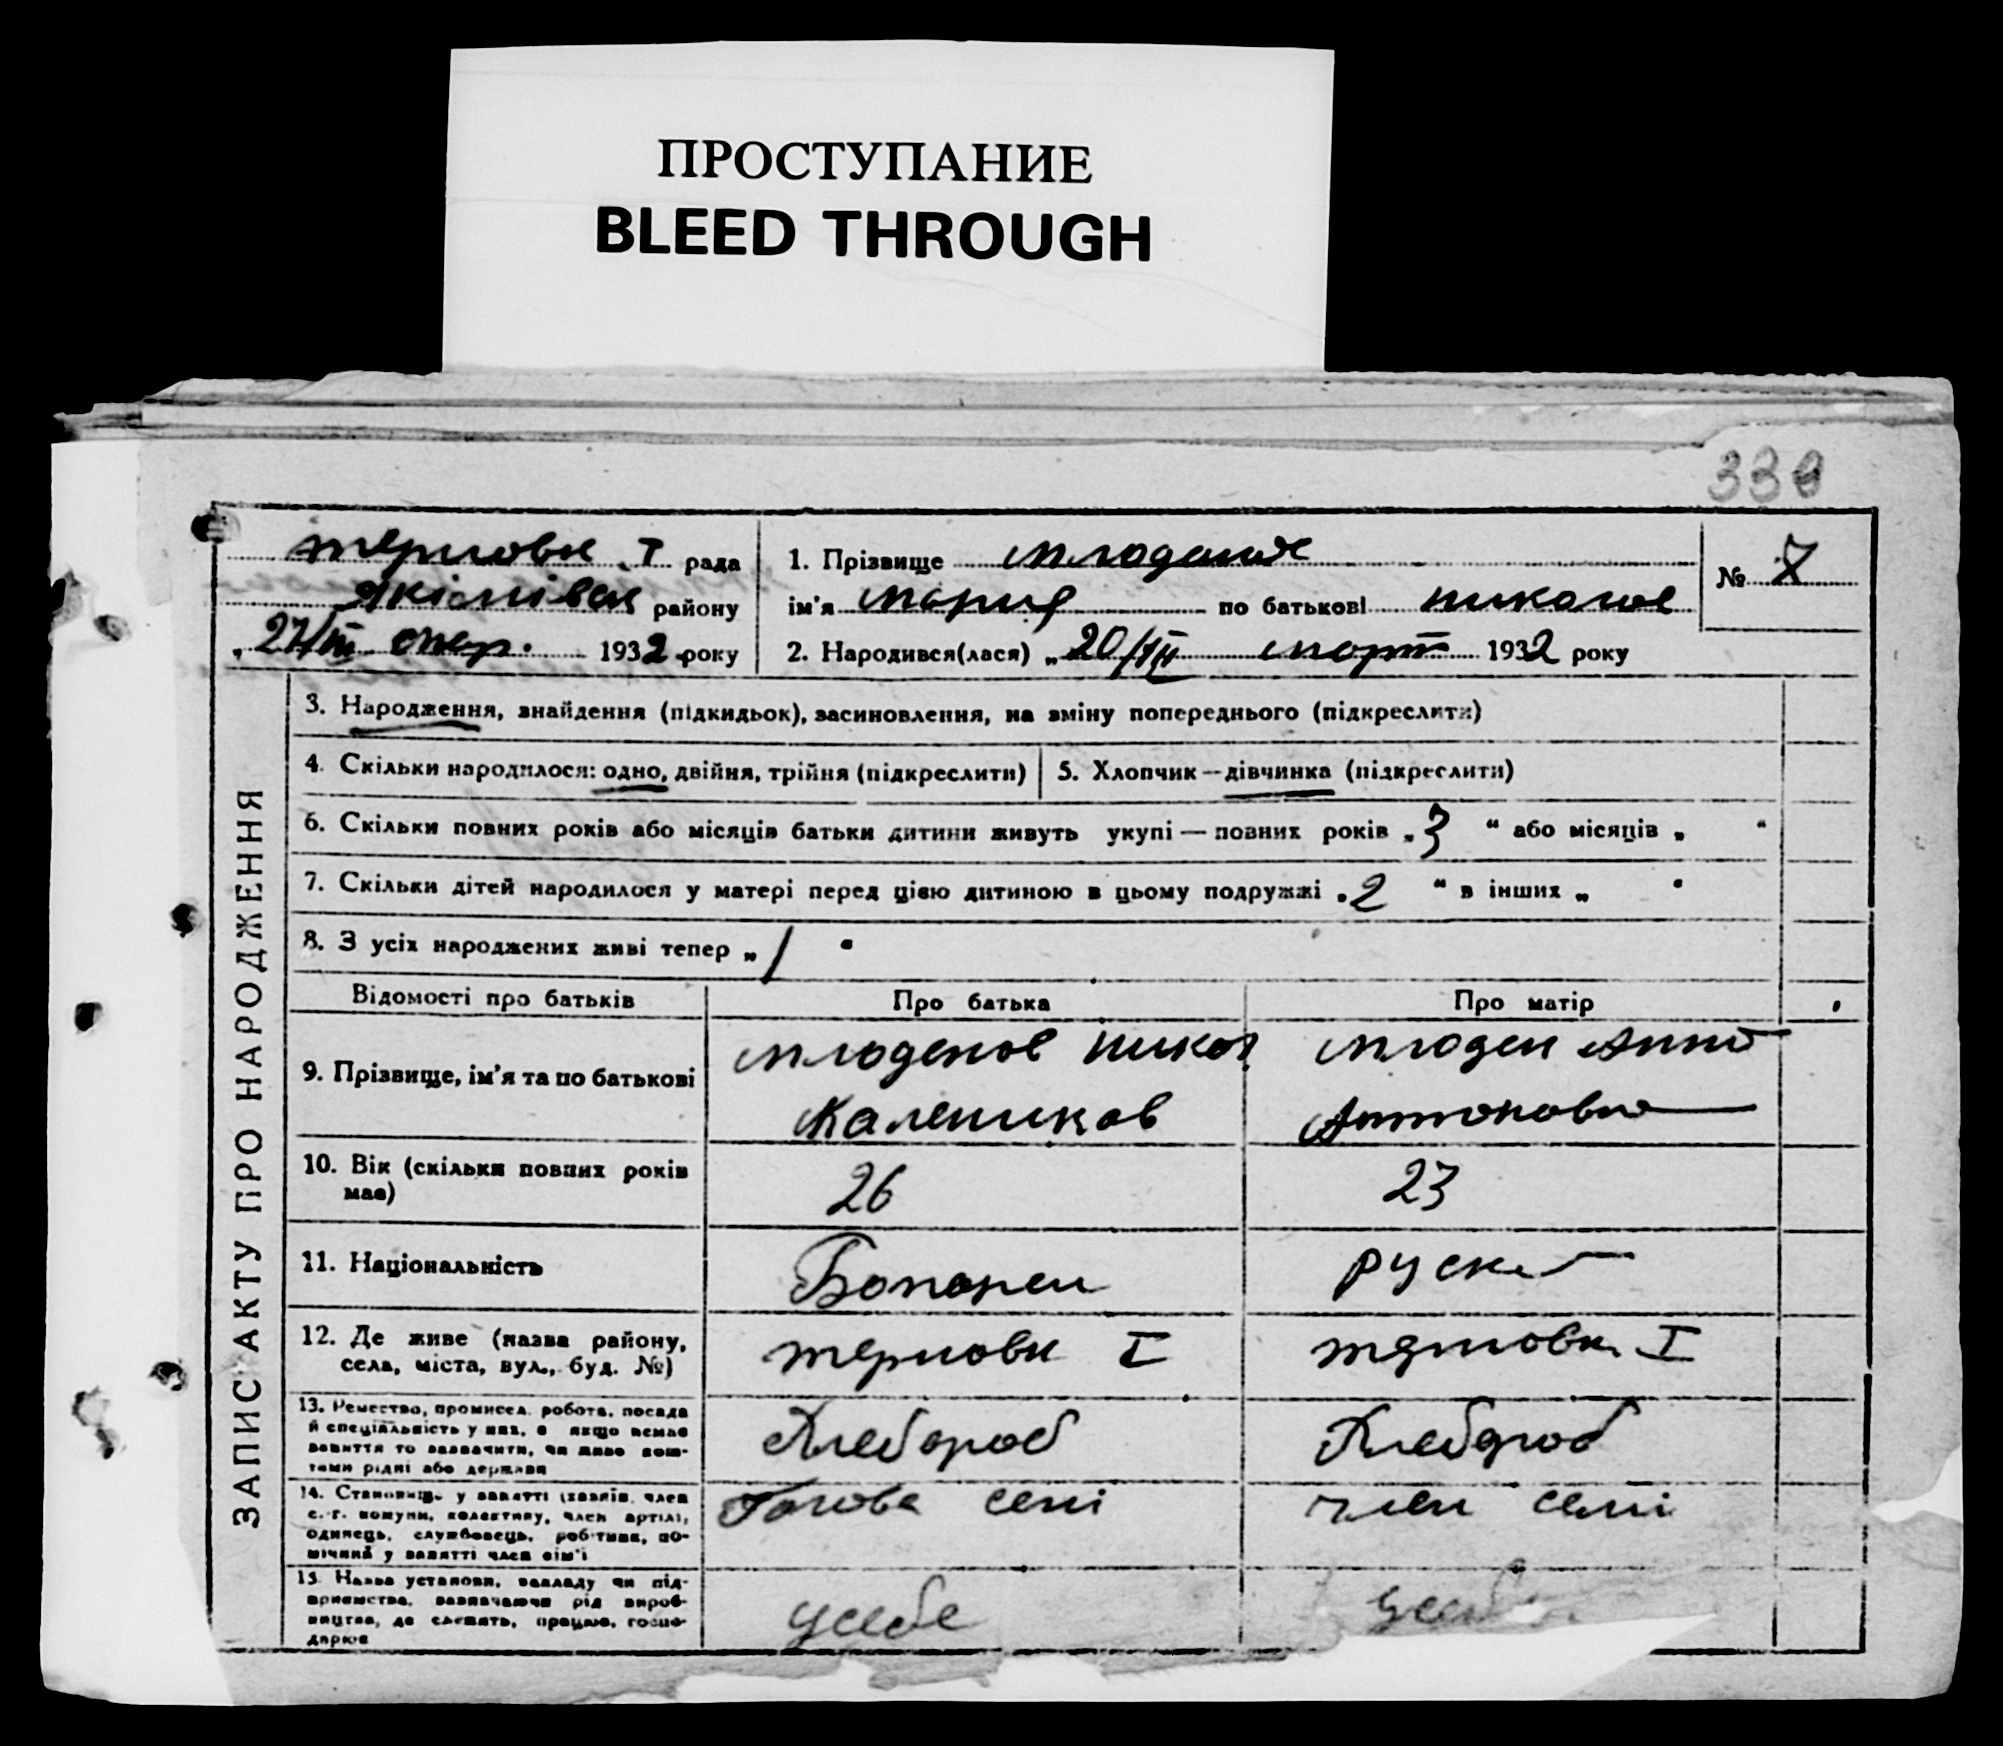 ПРОСТУПАНИЕ
BLEED THROUGH
330
рада
району
27/III 1932 року
1. Прізвище
ім'я Мария по батькові
№ 7
2. Народився(лася) „20/III март 1932 року
ЗАПИС АКТУ ПРО НАРОДЖЕННЯ
3. Народження, знайдення (підкидьок), засиновлення, на зміну попереднього (підкреслити)
4. Скільки народилося: одно, двійня, трійня (підкреслити) 5. Хлопчик—дівчинка (підкреслити)
6. Скільки повних років або місяців батьки дитини живуть укупі — повних років „3“ або місяців „ “
7. Скільки дітей народилося у матері перед цією дитиною в цьому подружжі „2“ в інших „ “
8. З усіх народжених живі тепер „1“
Відомості про батьків Про батька Про матір
9. Прізвище, ім'я та по батькові
Младенов Никол Младен Анна
Антоновна
10. Вік (скільки повних років має) 26 23
11. Національність
12. Де живе (назва району, села, міста, вул., буд. №) терновк I терновк I
13. Ремество, промисел, робота, посада
й спеціальність у них, а якщо немає
заняття то зазначити, чи живе кош-
тами рідні або держави
Хлебороб Хлебороб
14. Становище у занятті (хазяїн, член
с.-г. комуни, колективу, член артілі,
одинець, службовець, робітник, по-
мічний у занятті член сім'ї
Голова семі член семі
15. Назва установи, закладу чи під-
приємства, зазначаючи рід вироб-
ництва, де служить, працює, госпо-
дарює
усебе